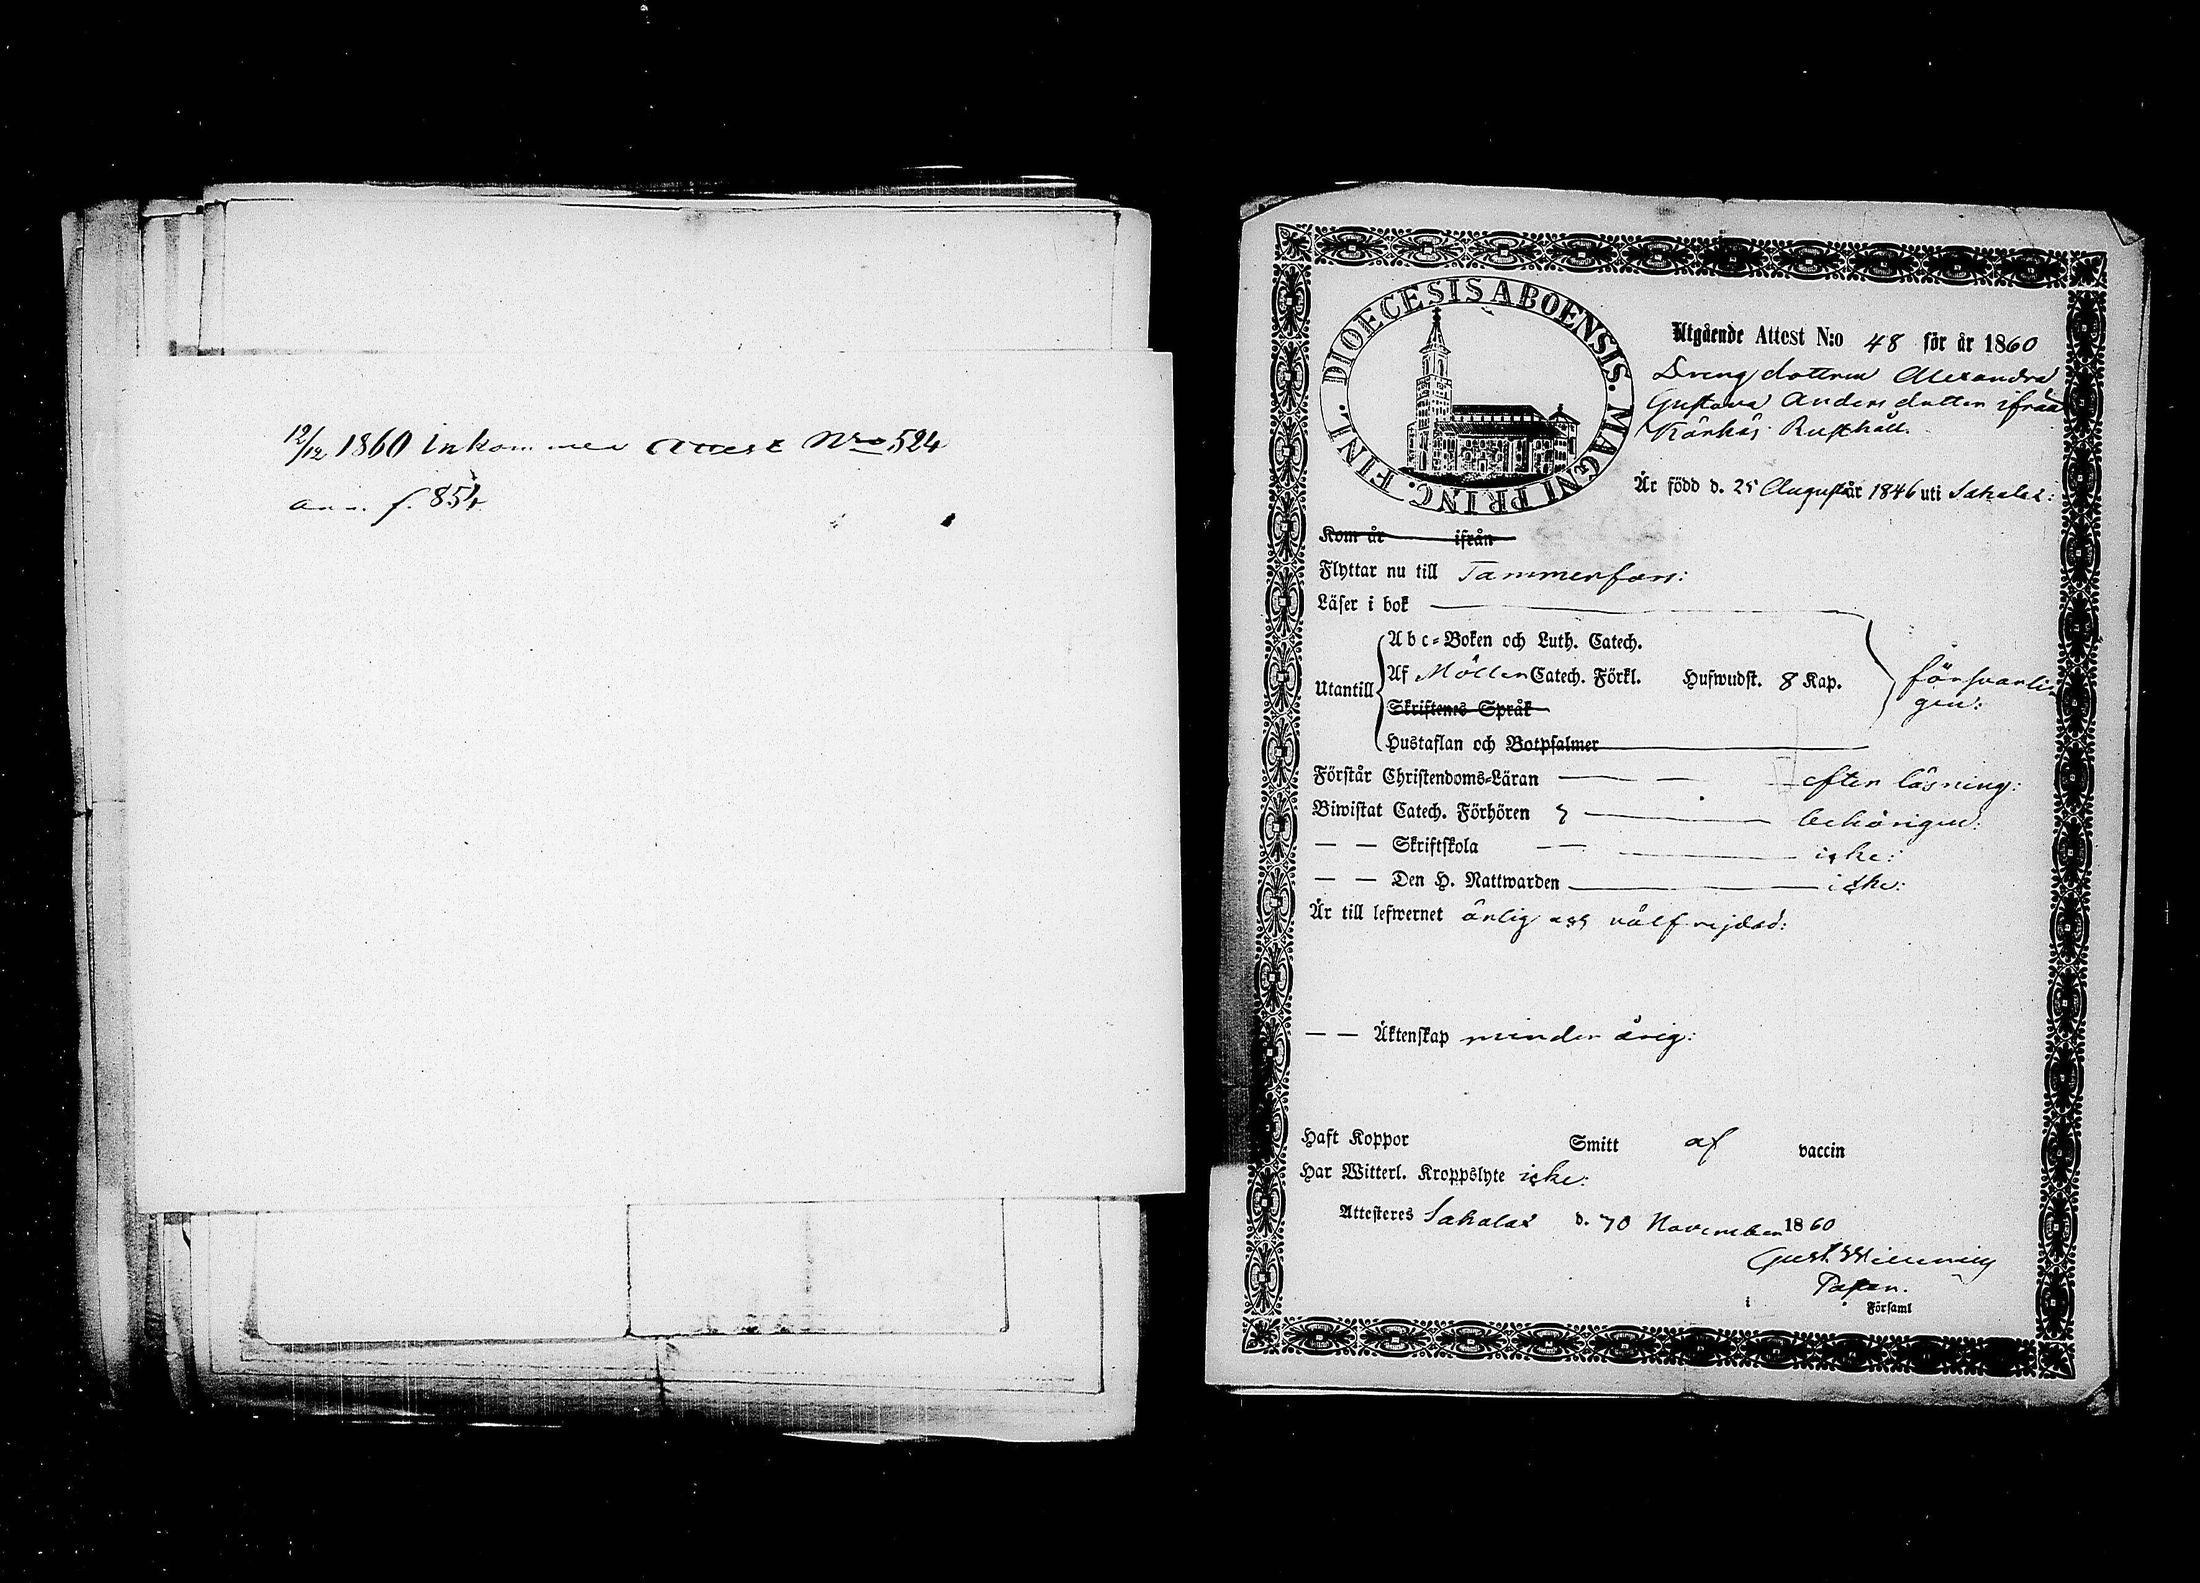 12/12 1860 Inkommen Attest Nro 524
ann. f. 854
DIOECESIS ABOENSIS. MAGNI PRINC. FINL.
Utgående Attest N:o 48 för år 1860
Drengdottren Alexandra
Gustava Andersdotter ifrån
Rusthåll.
Är född d. 25 August år 1846 uti Sahalax:
Kom år ifrån
Flyttar nu till Tammerfors:
Läser i bok
Abc-Boken och Luth. Catech.
Utantill Af Möllers Catech. Förkl. Hufwudst. 8 Kap. försvarli
gen:
Skriftenes Språk
Hustaflan och Botpsalmer
Förstår Christendoms-Läran — — efter läsning:
Biwistat Catech. Förhören — behörigen:
— — Skriftskola — — icke:
— — Den H. Nattwarden — icke:
Är till lefwernet ärlig och välfrejdad:
— — Äktenskap minderårig:
Haft Koppor Smitt af vaccin
Har Witterl. Kroppslyte icke:
Attesteres Sahalax d. November 1860
Gust.
Pastor.
i Församl